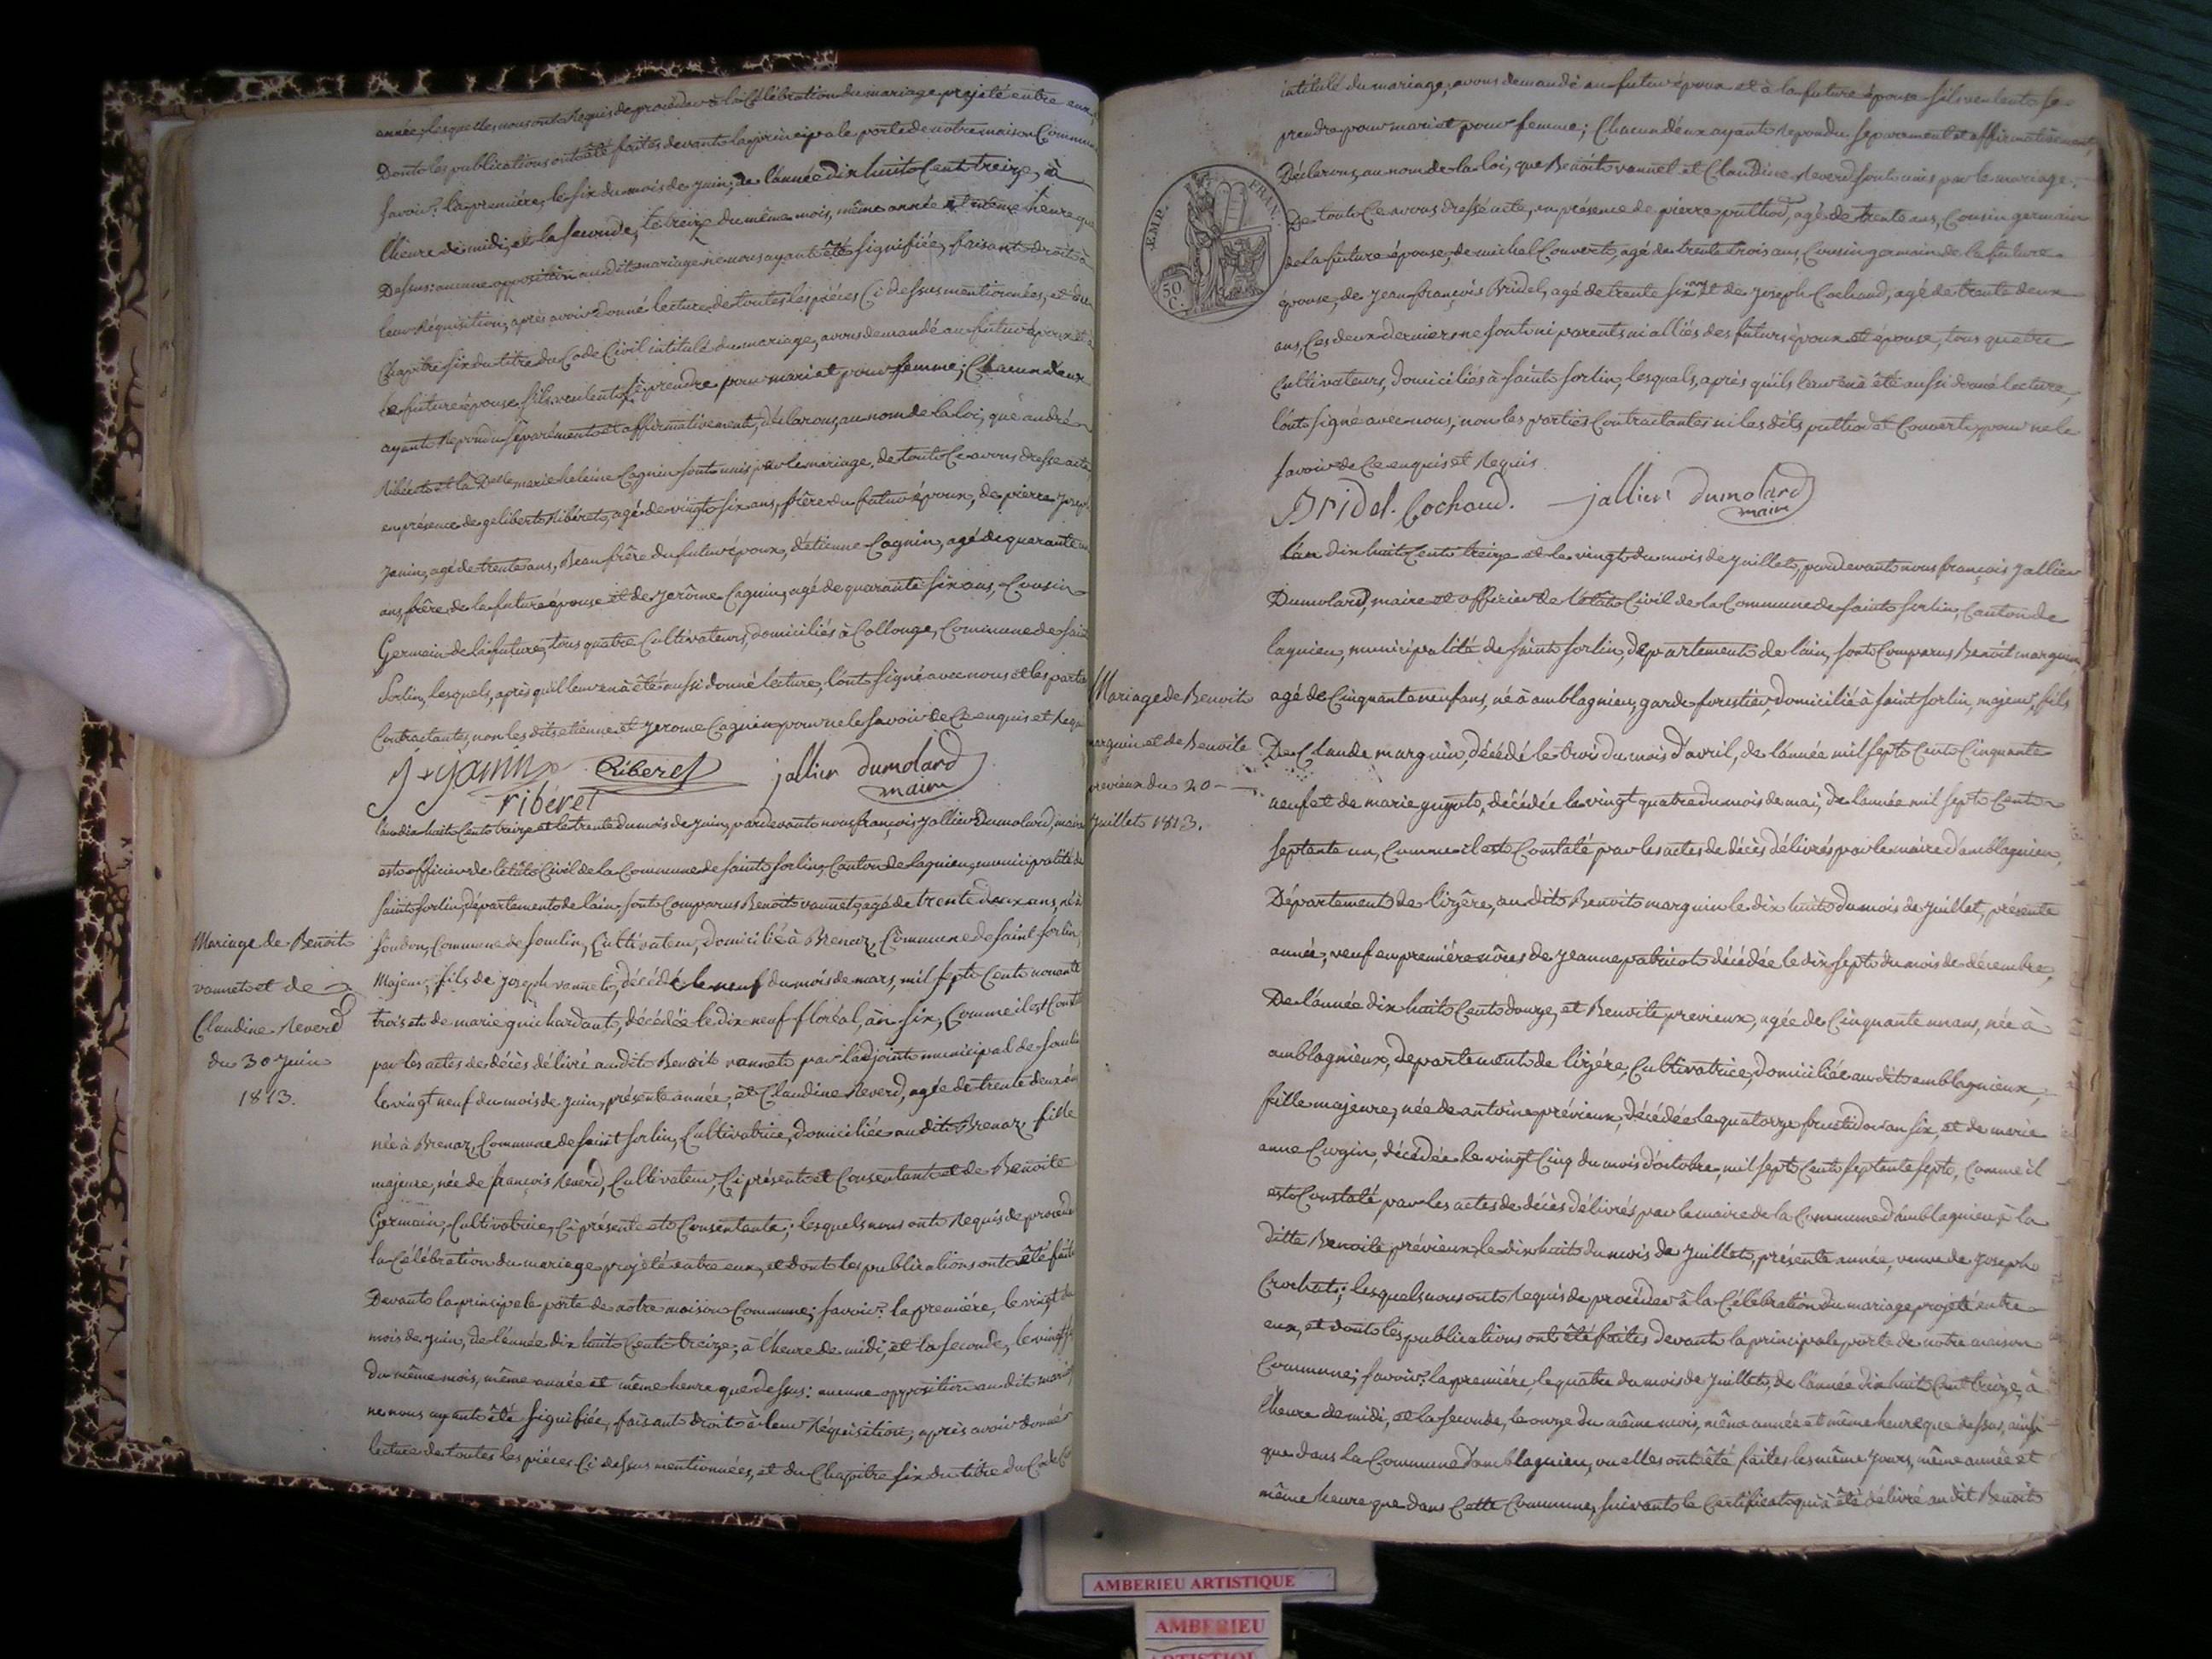 année, lesquelles nous ont Requis de procéder à la Célébration du mariage projeté entre eux,
Dont les publications ont été faites devant la principale porte de notre maison Commune
savoir: la première, le six du mois de juin, de l'année dix huit Cent treize, à
l'heure de midi, et la seconde, le treize du même mois, même année et même heure que
Dessus: aucune opposition au dit mariage ne nous ayant été signifiée, faisant droit à
leur Réquisition, après avoir Donné lecture de toutes les pièces Ci dessus mentionnées, et du
Chapitre six du titre du Code Civil intitulé du mariage, avons demandé au futur époux et à
la future épouse s'ils veulent se prendre pour mari et pour femme; Chacun deux
ayant Répondu séparément et affirmativement, déclarons, au nom de la loi, que andré
Ribéret et la Delle marie heleine Cagnin sont unis par le mariage, de tout Ce avons dressé acte
en présence de geliberts Ribéret, agé de vingt six ans, frère du futur époux, de pierre joseph
janin, agé de trente ans, Beau frère du futur époux, d'étienne Cagnin, agé de quarante un
ans, frère de la future épouse et de jerôme Cagnin, agé de quarante six ans, Cousin
Germain de la future, tous quatre Cultivateurs, domiciliés à Collonge, Commune de Saint
Sorlin, lesquels, après qu'il leur en à été aussi donné lecture, l'ont signé avec nous et les parties
Contractantes, non les dits etienne et jerome Cagnin pour ne le savoir de Ce enquis et Requis
j + janin Riberet jallier dumolard
ribéret maire
Mariage de Benoit
vannet et de
Claudine Reverd
du 30 juin
1813.
l'an dix huit Cent treize et le trente du mois de juin, par devant nous françois jallier Dumolard, maire
et officier de l'état Civil de la Commune de saint sorlin, Canton de lagnieu, municipalité de
saint sorlin, département de l'ain, sont Comparus Benoit vannet, agé de trente deux ans, né à
soudon, Commune de souclin, Cultivateur, domicilié à Brenaz, Commune de saint sorlin,
Majeur, fils de joseph vannet, décédé le neuf du mois de mars, mil sept Cent nonante
trois et de marie guichardant, décédée le dix neuf floréal, an six, Comme il est Constaté
par les actes de décès délivré au dit Benoit vannet par l'adjoint municipal de souclin
le vingt neuf du mois de juin, présente année, et Claudine Reverd, agée de trente deux ans
née à Brenaz, Commune de saint sorlin, Cultivatrice, domiciliée au dit Brenaz, fille
majeure, née de françois Reverd, Cultivateur, Ci présent et Consentant et de Benoite
Germain, Cultivatrice, Ci présente et Consentante; lesquels nous ont Requis de procéder
la Célébration du mariage projeté entre eux, et dont les publications ont été faites
Devant la principale porte de notre maison Commune; savoir: la première, le vingt du
mois de juin, de l'année dix huit Cent treize, à l'heure de midi, et la seconde, le vingt sept
du même mois, même année et même heure que dessus: aucune opposition au dit mariage
ne nous ayant été signifiée, faisant droit à leur Réquisition, après avoir donné
lecture de toutes les pièces Ci dessus mentionnées, et du Chapitre six du titre du Code Civil
intitulé du mariage, avons demandé au futur époux et à la future épouse s'ils veulent se
prendre pour mari et pour femme; Chacun deux ayant Repondu séparement et affirmativement,
Déclarons, au nom de la loi, que Benoit vannet et Claudine Reverd sont unis par le mariage.
De tout Ce avons dressé acte, en présence de pierre puthod, agé de trente ans, Cousin germain
de la future épouse, de michel Couvert, agé de trente trois ans, Cousin germain de la future
épouse, de jean françois Bridel, agé de trente six ans et de joseph Cochaud, agé de trente deux
ans, Ces deux derniers ne sont ni parents ni alliés des futurs époux et épouse, tous quatre
Cultivateurs, domiciliés à saint sorlin, lesquels, après qu'ils leur en à été aussi donné lecture,
l'ont signé avec nous, non les parties Contractantes ni les dits puthod et Couvert, pour ne le
savoir de Ce enquis et Requis
EMP. FRAN.
50 C.
Bridel. Cochaud. jallier dumolard
maire
Mariage de Benoit
marguin et de Benoite
prévieux du 20
juillet 1813.
l'an dix huit Cent treize et le vingt du mois de juillet, par devant nous françois jallier
Dumolard, maire et officier de l'état Civil de la Commune de saint sorlin, Canton de
lagnieu, municipalité de saint sorlin, département de l'ain, sont Comparus Benoit marguin,
agé de Cinquante neuf ans, né à amblagnieu, garde forestier, domicilié à saint sorlin, majeur, fils
De Claude marguin, décédé le trois du mois d'avril, de l'année mil sept Cent Cinquante
neuf et de marie guyot, décédée le vingt quatre du mois de mai, de l'année mil sept Cent
septante un, Comme il est Constaté par les actes de décès délivrés par le maire d'amblagnieu,
Département de l'izère, au dit Benoit marguin le dix huit du mois de juillet, présente
année, veuf en première nôces de jeanne patricot décédée le dix sept du mois de décembre,
De l'année dix huit Cent douze, et Benoite previeux, agée de Cinquante un ans, née à
amblagnieux, departement de l'izère, Cultivatrice, domiciliée au dit amblagnieux,
fille majeure, née de antoine prévieux, décédé le quatorze fructidor an six, et de marie
anne Cugin, décédée le vingt Cinq du mois d'octobre, mil sept Cent septante sept, Comme il
est Constaté par les actes de décès délivrés par le maire de la Commune d'amblagnieu à la
ditte Benoite prévieux le dix huit du mois de juillet, présente année, veuve de joseph
Crochat; lesquels nous ont Requis de procéder à la Célébration du mariage projeté entre
eux, et dont les publications ont été faites devant la principale porte de notre maison
Commune; savoir: la première, le quatre du mois de juillet, de l'année dix huit Cent treize, à
l'heure de midi, et la seconde, le onze du même mois, même année et même heure que dessus, ainsi
que dans la Commune d'amblagnieu, ou elles ont été faites les même jours, même année et
même heure que dans Cette Commune, suivant le Certificat qui à été délivré au dit Benoit
AMBERIEU ARTISTIQUE
AMBERIEU
ARTISTIQUE